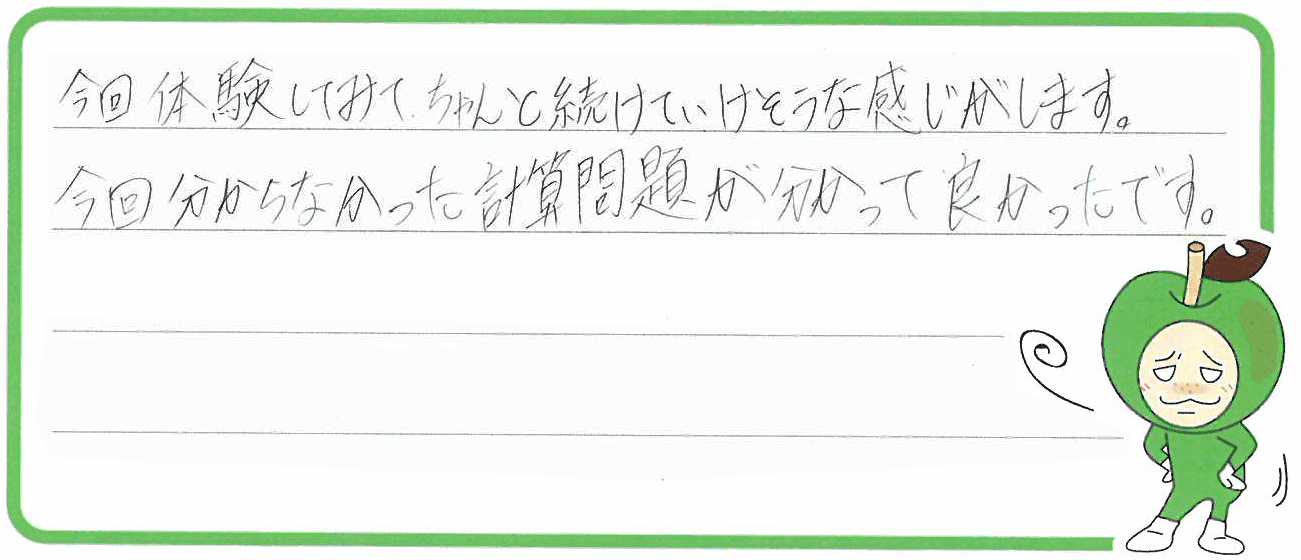 今回体験してみて、ちゃんと続けていけそうな感じがします。
今回分からなかった計算問題が分かって良かったです。